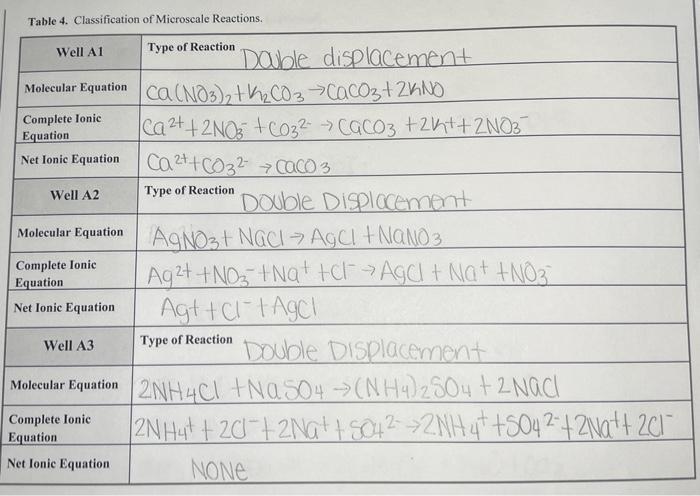 Table 4. Classification of Microscale Reactions.
Well A1 Type of Reaction Double displacement
Molecular Equation Ca(NO3)2+K2CO3→CaCO3+2KNO
Complete Ionic Equation Ca2++2NO3-+CO32-→CaCO3+2K++2NO3-
Net Ionic Equation Ca2++CO32-→CaCO3
Well A2 Type of Reaction Double Displacement
Molecular Equation AgNO3+NaCl→AgCl+NaNO3
Complete Ionic Equation Ag2++NO3-+Na++Cl-→AgCl+Na++NO3-
Net Ionic Equation Ag++Cl-+AgCl
Well A3 Type of Reaction Double Displacement
Molecular Equation 2NH4Cl+NaSO4→(NH4)2SO4+2NaCl
Complete Ionic Equation 2NH4++2Cl-+2Na++SO42-→2NH4++SO42-+2Na++2Cl-
Net Ionic Equation NONe